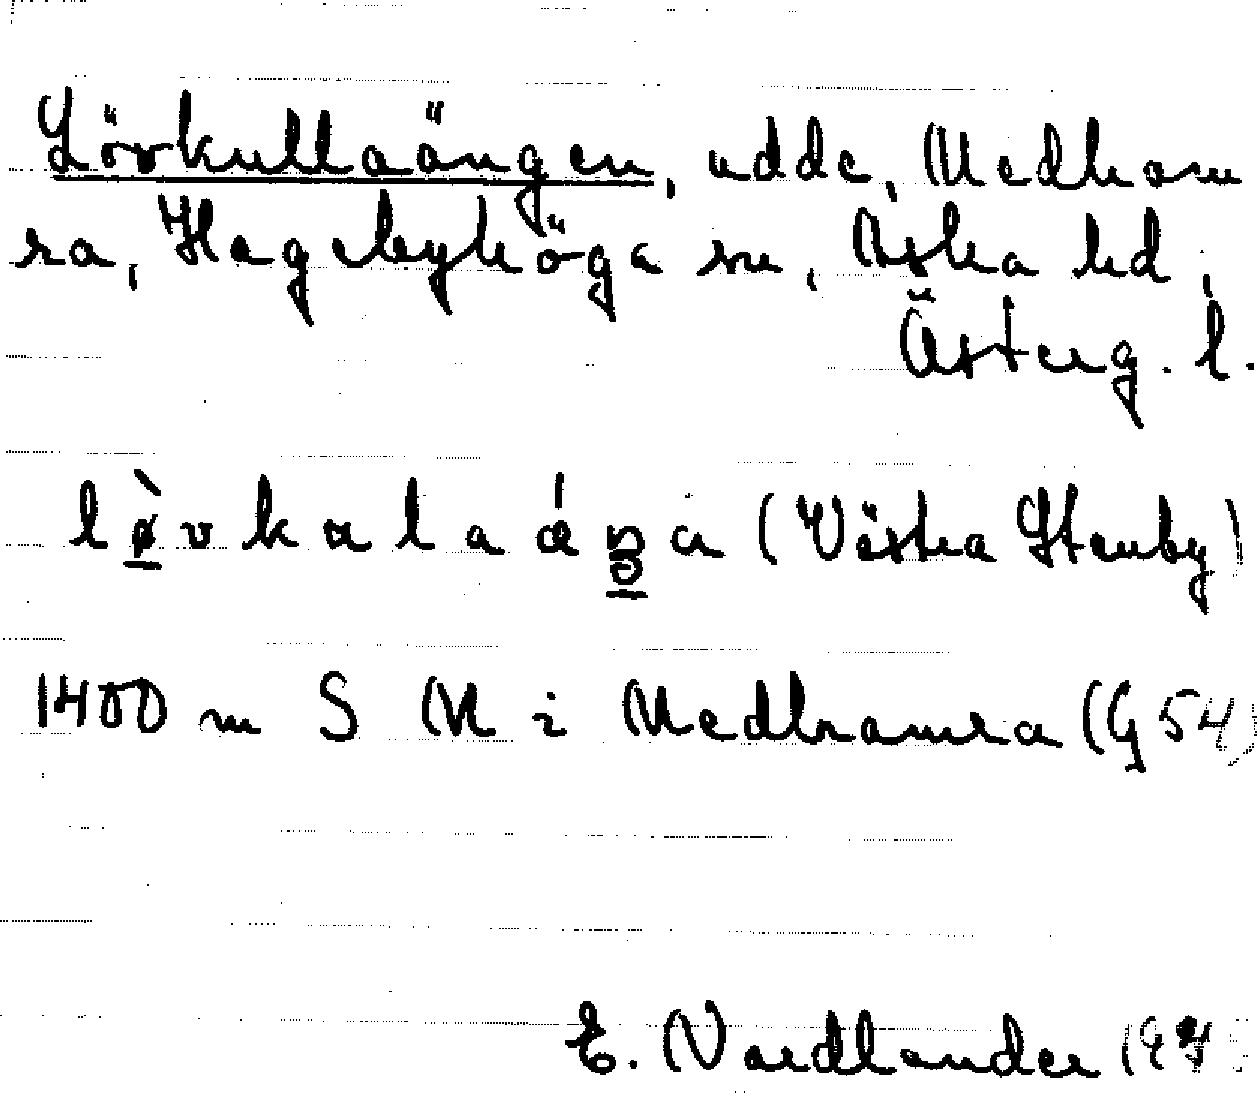 Lövkullaängen, udde, Medham
ra, Hagebyhöga sn, Aska hd,
Österg. l.
(Västra Stenby)
1400 m S M i Medhamra (G 54)
E. Nordlander